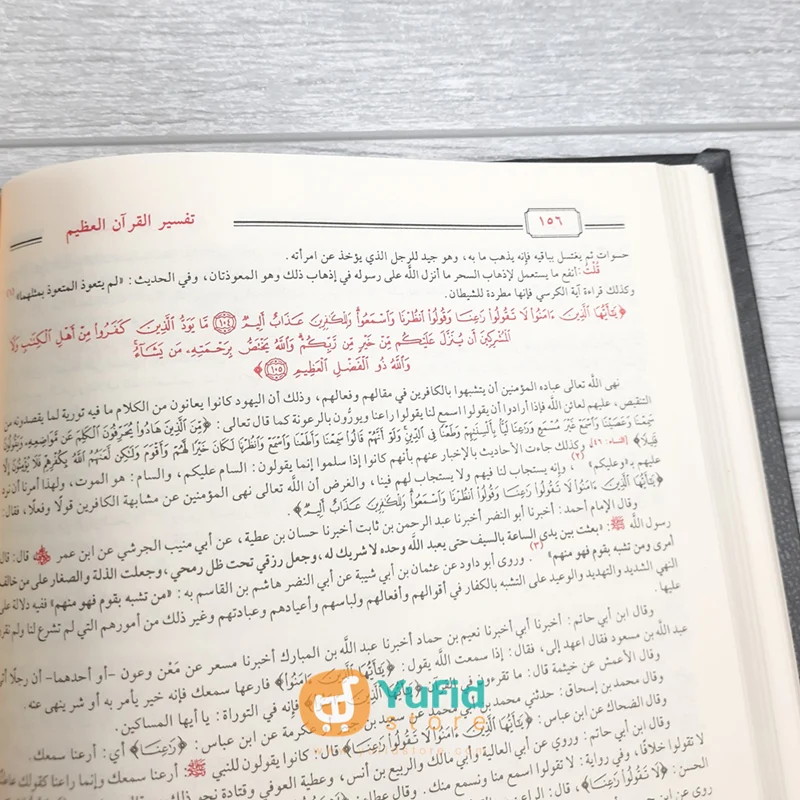 تفسير القرآن العظيم
١٥٦
حسوات ثم يغتسل بباقيه فإنه يذهب ما به، وهو جيد للرجل الذي يؤخذ عن امرأته.
قُلْتُ: أنفع ما يستعمل لإذهاب السحر ما أنزل اللَّه على رسوله في إذهاب ذلك وهو المعوذتان، وفي الحديث: «لم يتعوذ المتعوذ بمثلهما» (١)
وكذلك قراءة آية الكرسي فإنها مطردة للشيطان.
﴿يَٰٓأَيُّهَا ٱلَّذِينَ ءَامَنُوا۟ لَا تَقُولُوا۟ رَٰعِنَا وَقُولُوا۟ ٱنظُرْنَا وَٱسْمَعُوا۟ وَلِلْكَٰفِرِينَ عَذَابٌ أَلِيمٌ ۝١٠٤ مَّا يَوَدُّ ٱلَّذِينَ كَفَرُوا۟ مِنْ أَهْلِ ٱلْكِتَٰبِ وَلَا
ٱلْمُشْرِكِينَ أَن يُنَزَّلَ عَلَيْكُم مِّنْ خَيْرٍ مِّن رَّبِّكُمْ وَٱللَّهُ يَخْتَصُّ بِرَحْمَتِهِۦ مَن يَشَآءُ
وَٱللَّهُ ذُو ٱلْفَضْلِ ٱلْعَظِيمِ ۝١٠٥﴾
نهى اللَّه تعالى عباده المؤمنين أن يتشبهوا بالكافرين في مقالهم وفعالهم، وذلك أن اليهود كانوا يعانون من الكلام ما فيه تورية لما يقصدونه من
التنقيص، عليهم لعائن اللَّه فإذا أرادوا أن يقولوا اسمع لنا يقولوا راعنا ويورُّون بالرعونة كما قال تعالى: ﴿مِّنَ ٱلَّذِينَ هَادُوا۟ يُحَرِّفُونَ ٱلْكَلِمَ عَن مَّوَاضِعِهِۦ وَيَقُولُونَ
سَمِعْنَا وَعَصَيْنَا وَٱسْمَعْ غَيْرَ مُسْمَعٍ وَرَٰعِنَا لَيًّۢا بِأَلْسِنَتِهِمْ وَطَعْنًا فِى ٱلدِّينِ وَلَوْ أَنَّهُمْ قَالُوا۟ سَمِعْنَا وَأَطَعْنَا وَٱسْمَعْ وَٱنظُرْنَا لَكَانَ خَيْرًا لَّهُمْ وَأَقْوَمَ وَلَٰكِن لَّعَنَهُمُ ٱللَّهُ بِكُفْرِهِمْ فَلَا يُؤْمِنُونَ إِلَّا
قَلِيلًا﴾ [النساء: ٤٦] وكذلك جاءت الأحاديث بالإخبار عنهم بأنهم كانوا إذا سلموا إنما يقولون: السام عليكم، والسام: هو الموت، ولهذا أمرنا أن نرد
عليهم بـ«وعليكم» (٢)، وإنه يستجاب لنا فيهم ولا يستجاب لهم فينا، والغرض أن اللَّه تعالى نهى المؤمنين عن مشابهة الكافرين قولًا وفعلًا، فقال:
﴿يَٰٓأَيُّهَا ٱلَّذِينَ ءَامَنُوا۟ لَا تَقُولُوا۟ رَٰعِنَا وَقُولُوا۟ ٱنظُرْنَا وَٱسْمَعُوا۟ وَلِلْكَٰفِرِينَ عَذَابٌ أَلِيمٌ﴾.
وقال الإمام أحمد: أخبرنا أبو النضر أخبرنا عبد الرحمن بن ثابت أخبرنا حسان بن عطية، عن أبي منيب الجرشي عن ابن عمر قال: قال
رسول اللَّه ﷺ: «بعثت بين يدي الساعة بالسيف حتى يعبد اللَّه وحده لا شريك له، وجعل رزقي تحت ظل رمحي، وجعلت الذلة والصغار على من خالف
أمري ومن تشبه بقوم فهو منهم» (٣). وروى أبو داود عن عثمان بن أبي شيبة عن أبي النضر هاشم بن القاسم به: «من تشبه بقوم فهو منهم» ففيه دلالة على
النهي الشديد والتهديد والوعيد على التشبه بالكفار في أقوالهم وأفعالهم ولباسهم وأعيادهم وعبادتهم وغير ذلك من أمورهم التي لم تشرع لنا ولم نقر
عليها.
وقال ابن أبي حاتم: أخبرنا أبي أخبرنا نعيم بن حماد أخبرنا عبد اللَّه بن المبارك أخبرنا مسعر عن مَعْن وعون -أو أحدهما- أن رجلًا أتى
عبد اللَّه بن مسعود فقال اعهد إلى، فقال: إذا سمعت اللَّه يقول: ﴿يَٰٓأَيُّهَا ٱلَّذِينَ ءَامَنُوا۟﴾ فارعها سمعك فإنه خير يأمر به أو شر ينهى عنه.
وقال الأعمش عن خيثمة قال: ما تقرءون في ﴿يَٰٓأَيُّهَا ٱلَّذِينَ﴾ فإنه في التوراة: يا أيها المساكين.
وقال محمد بن إسحاق: حدثني محمد بن أبي محمد عن سعيد بن عكرمة عن ابن عباس: ﴿رَٰعِنَا﴾ أي: أرعنا سمعك.
وقال الضحاك عن ابن عباس: ﴿يَٰٓأَيُّهَا ٱلَّذِينَ ءَامَنُوا۟ لَا تَقُولُوا۟ رَٰعِنَا﴾ قال: كانوا يقولون للنبي ﷺ: أرعنا سمعك وإنما راعنا كقولك
وقال ابن أبي حاتم: وروي عن أبي العالية وأبي مالك والربيع بن أنس، وعطية العوفي وقتادة نحو ذلك
لا تقولوا خلافًا، وفي رواية: لا تقولوا اسمع منا ونسمع منك. وقال عطاء:
الحسن: ﴿لَا تَقُولُوا۟ رَٰعِنَا﴾، قال:
YuFid
store